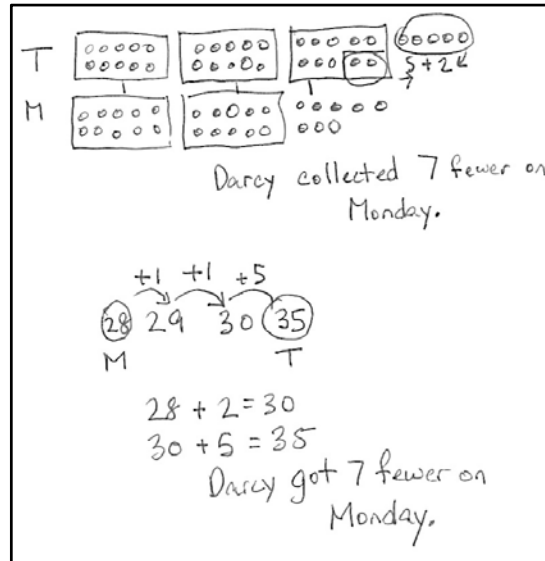 T
5 + 2
M
Darcy collected 7 fewer on
Monday.
+1 +1 +5
28 29 30 35
M T
28 + 2 = 30
30 + 5 = 35
Darcy got 7 fewer on
Monday.